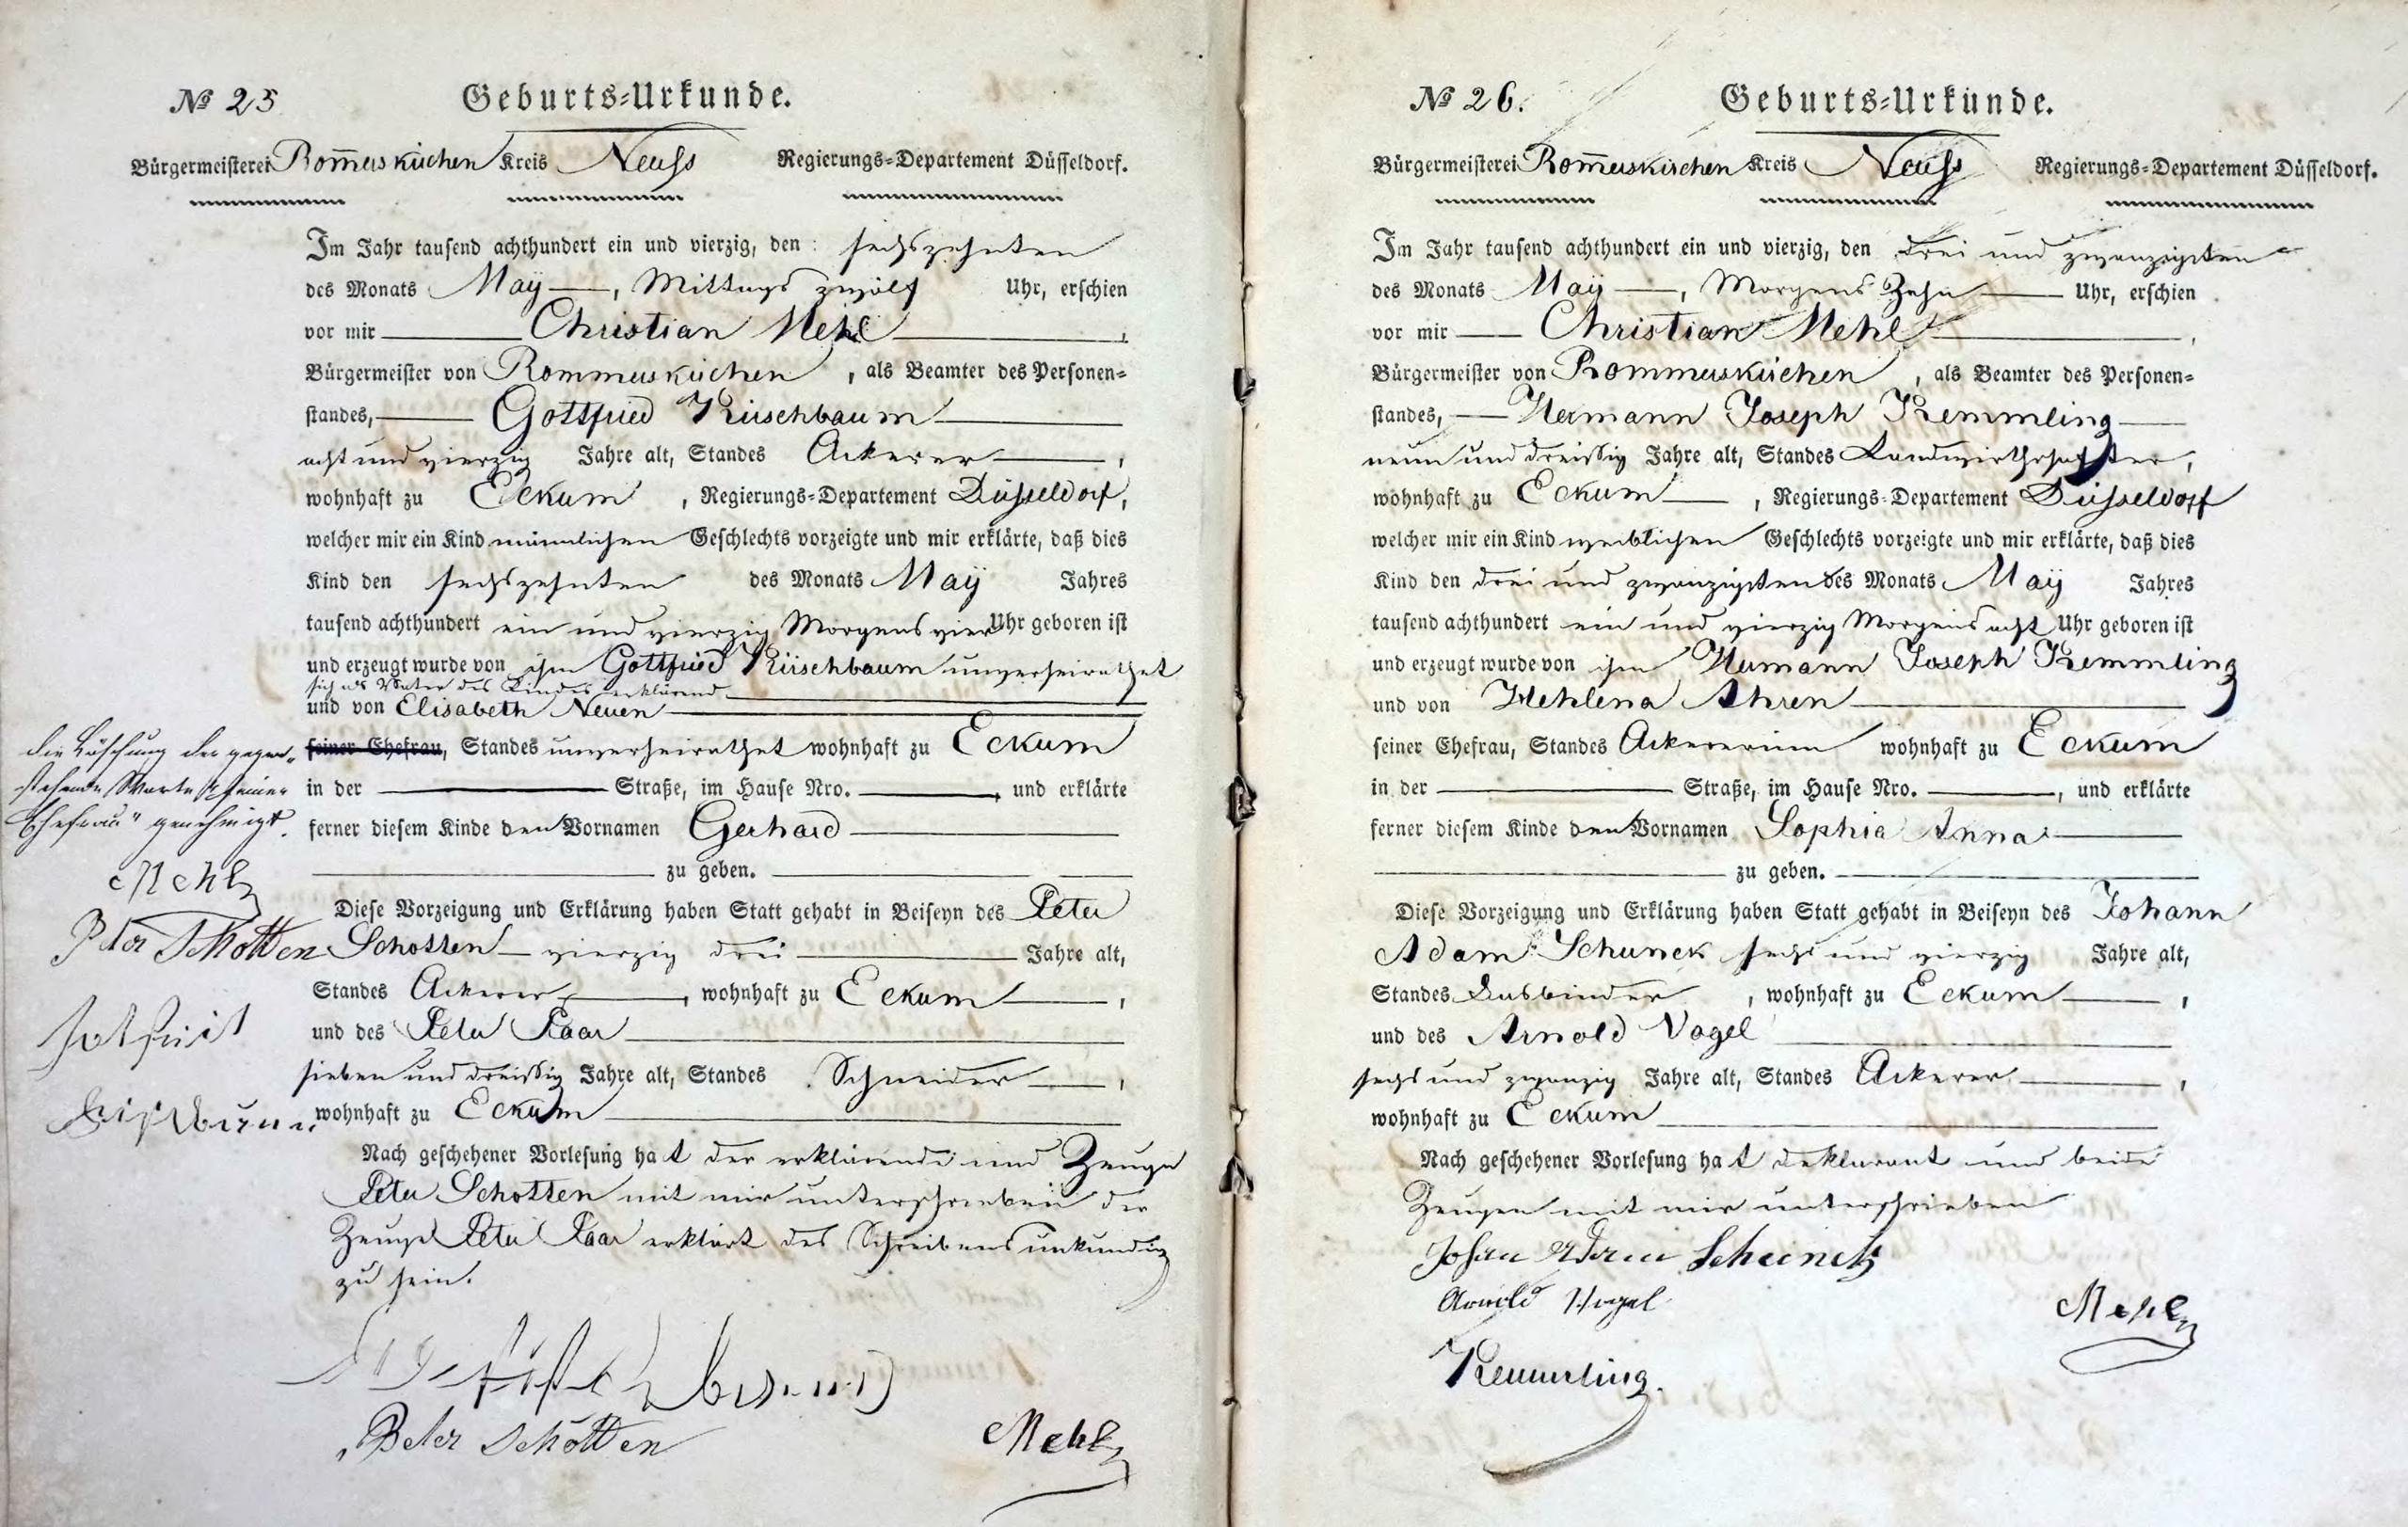 № 25
Geburts=Urkunde.
Bürgermeisterei Rom̅erskirchen Kreis Neuss Regierungs=Departement Düsseldorf.
Im Jahr tausend achthundert ein und vierzig, den sechszehnten
des Monats Maÿ —, Mittags zwölf Uhr, erschien
vor mir — Christian Mehl —,
Bürgermeister von Rommerskirchen, als Beamter des Personen=
standes, — Gottfried Kirschbaum —
acht und vierzig Jahre alt, Standes Ackerer —,
wohnhaft zu Eckum, Regierungs=Departement Düsseldorf,
welcher mir ein Kind männlichen Geschlechts vorzeigte und mir erklärte, daß dies
Kind den sechszehnten des Monats Maÿ Jahres
tausend achthundert ein und vierzig Morgens vier Uhr geboren ist
und erzeugt wurde von ihm Gottfried Kirschbaum unverheirathet
sich als Vater des Kindes erklärend —
und von Elisabeth Neuen —
seiner Ehefrau, Standes unverheirathet wohnhaft zu Eckum
in der — Straße, im Hause Nro. —, und erklärte
ferner diesem Kinde den Vornamen Gerhard —
— zu geben. —
Diese Vorzeigung und Erklärung haben Statt gehabt in Beiseyn des Peter
Schotten — vierzig drei — Jahre alt,
Standes Ackerer —, wohnhaft zu Eckum —,
und des Peter Paar —
sieben und dreißig Jahre alt, Standes Schneider —,
wohnhaft zu Eckum —
Nach geschehener Vorlesung hat der erklärende und Zeuge
Peter Schotten mit mir unterschrieben der
Zeuge Peter Paar erklärt des Schreibens unkundig
zu sein.
Peter Schotten
Mehl
die Löschung der gegen=
stehenden Worte „seiner
Ehefrau“ genehmigt.
Mehl
Peter Schotten
№ 26.
Geburts=Urkunde.
Bürgermeisterei Rom̅erskirchen Kreis Neuss Regierungs=Departement Düsseldorf.
Im Jahr tausend achthundert ein und vierzig, den drei und zwanzigsten
des Monats Maÿ —, Morgens Zehn — Uhr, erschien
vor mir — Christian Mehl —,
Bürgermeister von Rommerskirchen, als Beamter des Personen=
standes, — Hermann Joseph Kemmling —
neun und dreißig Jahre alt, Standes Landwirthschafter,
wohnhaft zu Eckum —, Regierungs=Departement Düsseldorf
welcher mir ein Kind weiblichen Geschlechts vorzeigte und mir erklärte, daß dies
Kind den drei und zwanzigsten des Monats Maÿ Jahres
tausend achthundert ein und vierzig Morgens acht Uhr geboren ist
und erzeugt wurde von ihm Hermann Joseph Kemmling
und von Hehlena Ahren —
seiner Ehefrau, Standes Ackererinn wohnhaft zu Eckum
in der — Straße, im Hause Nro. —, und erklärte
ferner diesem Kinde den Vornamen Sophia Anna —
— zu geben. —
Diese Vorzeigung und Erklärung haben Statt gehabt in Beiseyn des Johann
Adam Schunck sechs und vierzig Jahre alt,
Standes Fasbinder, wohnhaft zu Eckum —,
und des Arnold Vogel
sechs und zwanzig Jahre alt, Standes Ackerer —,
wohnhaft zu Eckum —
Nach geschehener Vorlesung hat Deklarant und beide
Zeugen mit mir unterschrieben
Johan Adam Schunck
Arnold Vogel
Mehl
Kemmling.